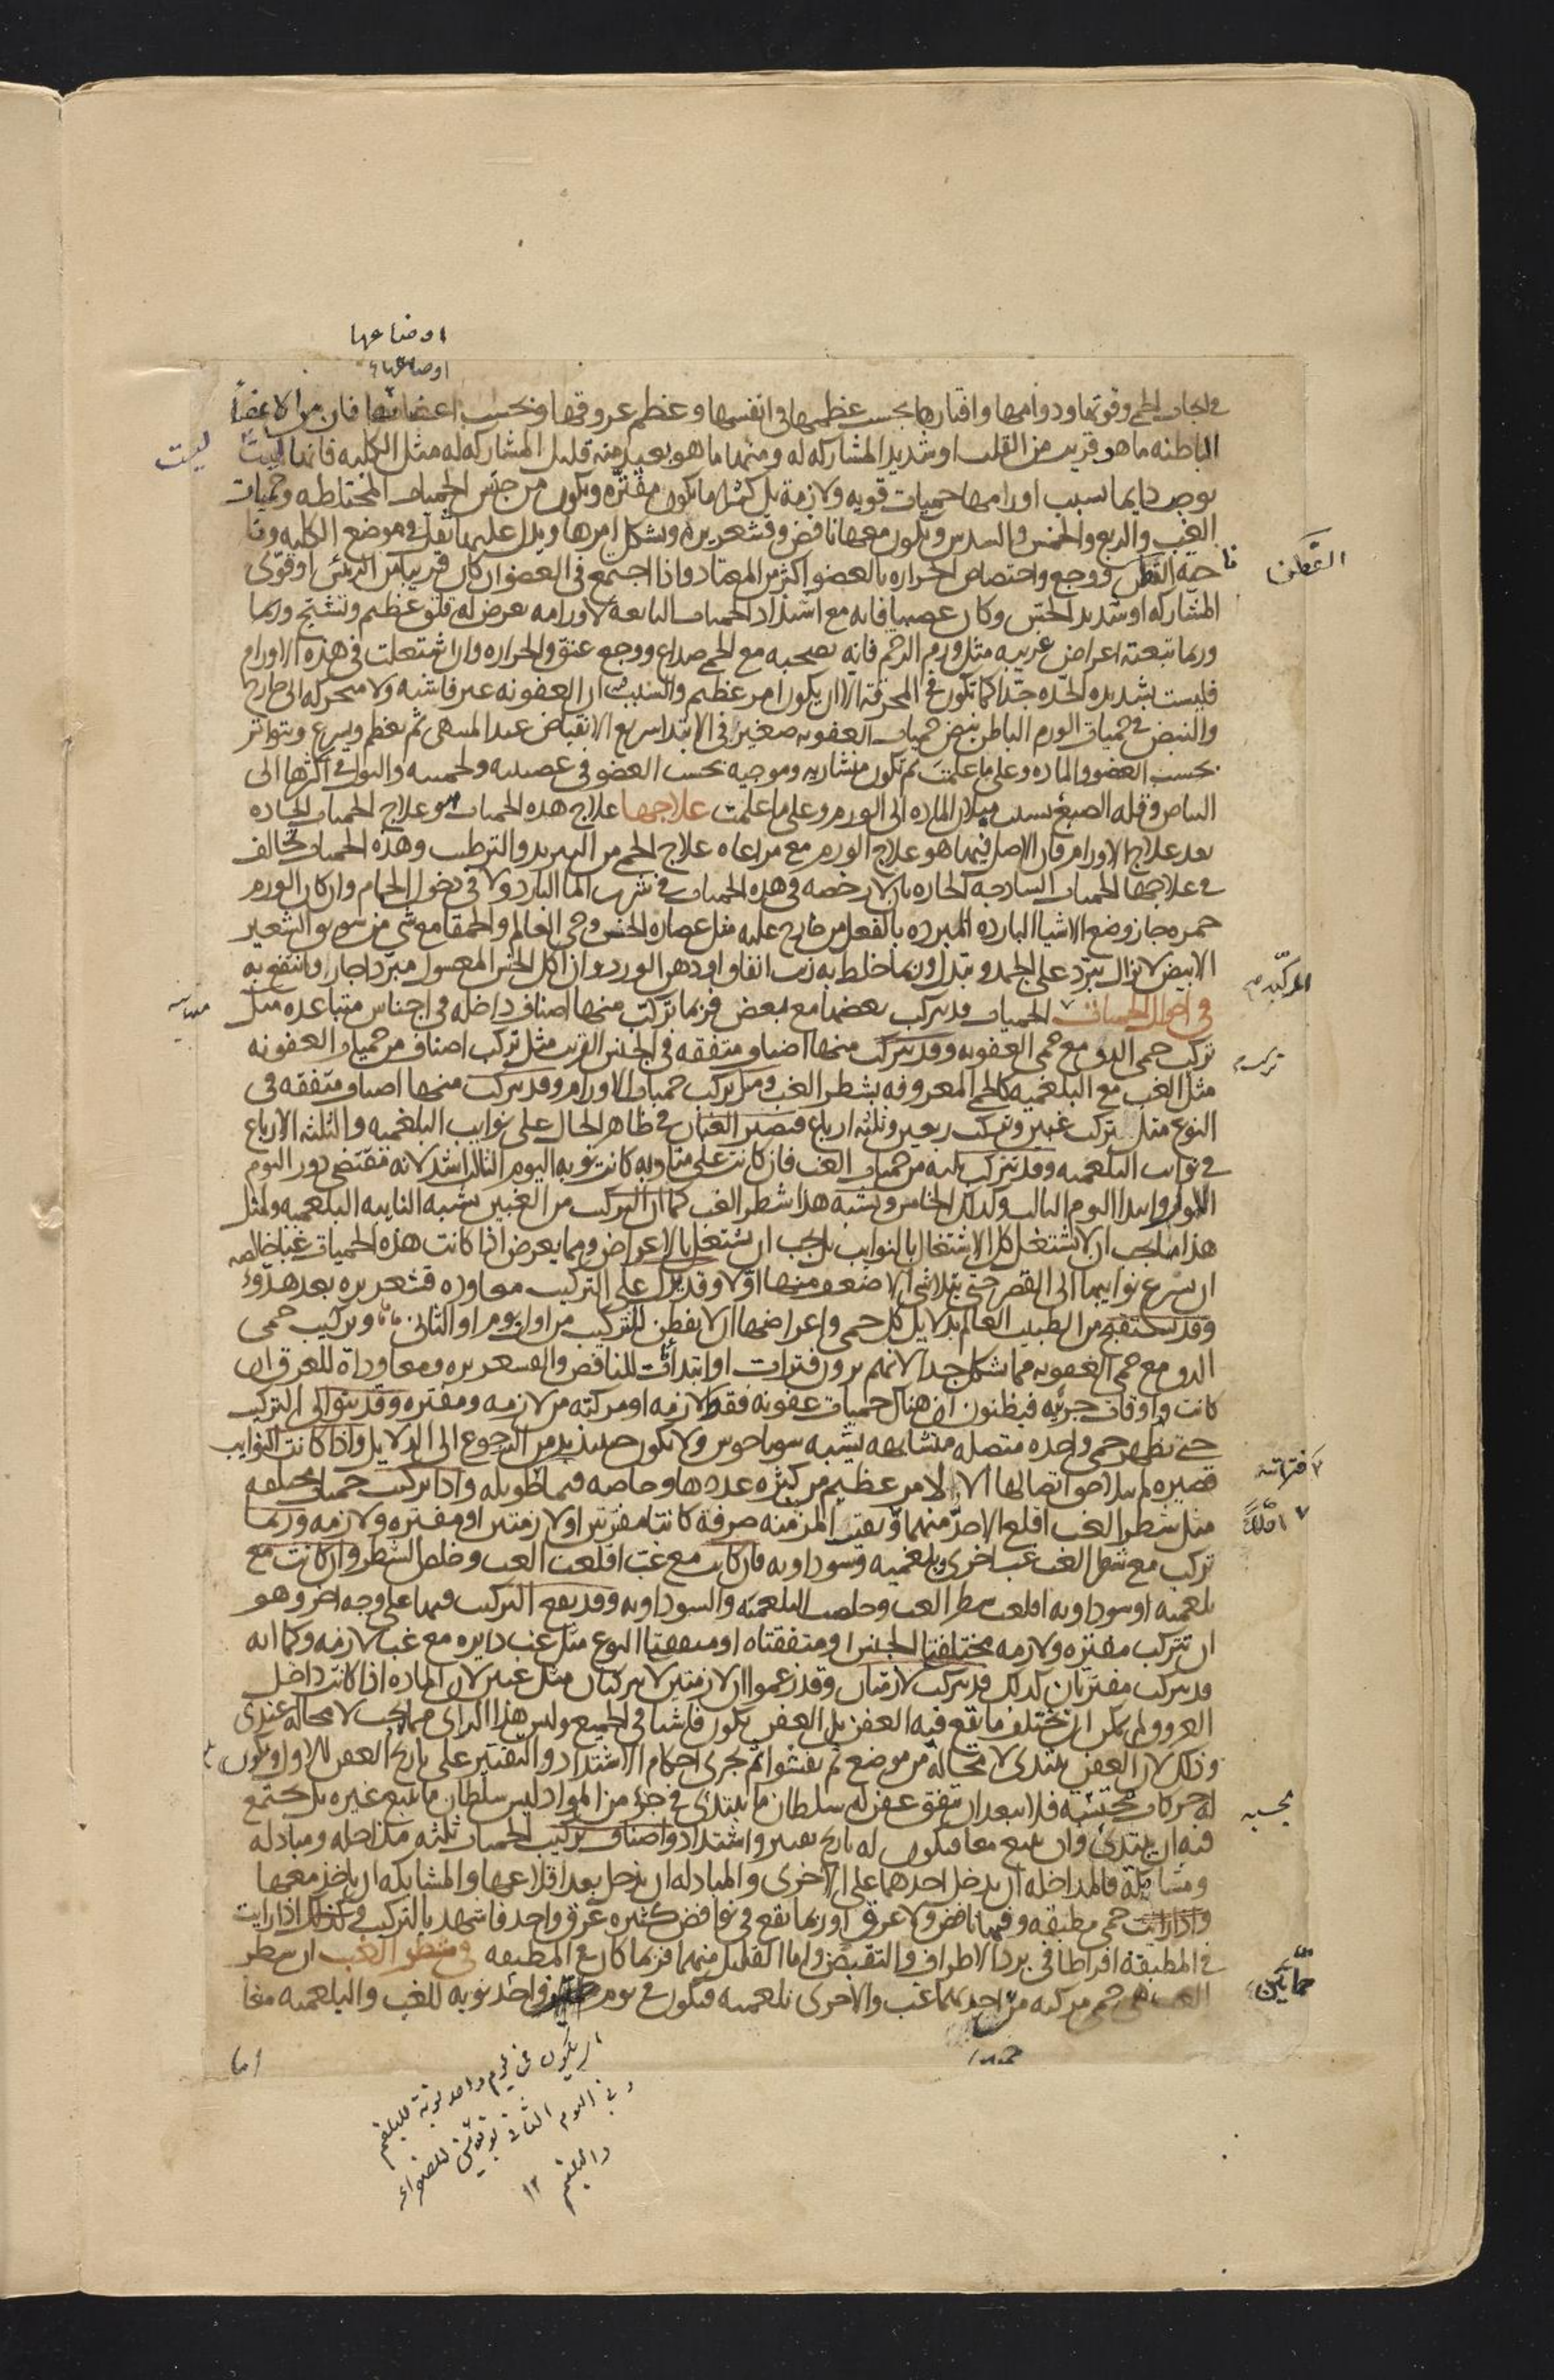 اوضاعها
اوضاعها
في ايجاب الحمى وقوتها ودوامها واقتارها بحسب عظمها في انفسها وعظم عروقها وبحسب اعضائها فان من الاعضا
الباطنه ما هو قريب من القلب او شديد المشاركه له ومنها ما هو بعيد منه قليل المشاركه له مثل الكليه فانها ليست
ليست
يوجب دايما بسبب اورامها حميات قويه ولازمة بل كثيرا ما يكون مفتره ويكون من جنس الحميات المختلطه وحميات
الغب والربع والخمس والسدس ويكون معها نافض وقشعريره ويشكل امرها ويدل عليها ثقل في موضع الكليه ونا
حيه القطن ووجع واختصاص الحراره بالعضو اكثر من المعتاد واذا اجتمع في العضو ان كان قريبا من الرئس او قوى
القطن
المشاركه او شديد الحس وكان عصبيا فانه مع اشتداد الحميات التابعه لاورامه يعرض له قلق عظيم وتشنج وربما
وربما تبعته اعراض غريبه مثل ورم الرحم فانه يصحبه مع الحمى صداع ووجع عنق والحراره وان اشتعلت في هذه الاورام
فليست بشديده الحده جدا كما تكون في المحرقة الا ان يكون امر عظيم والسبب ان العفونه غير فاشيه ولا متحركه الى خارج
والنبض في حميات الورم الباطن نبض حميات العفونه صغير في الابتدا سريع الانقباض عند المنتهى ثم يعظم ويسرع ويتواتر
بحسب العضو والماده وعلى ما علمت ثم تكون منشاريه وموجيه بحسب العضو في عصبيته ولحميته والبول في اكثرها الى
البياض وقله الصبغ بسبب ميلان الماده الى الورم وعلى ما علمت علاجها علاج هذه الحميات هو علاج الحميات الحاده
بعد علاج الاورام فان الاصل فيها هو علاج الورم مع مراعاه علاج الحمى من التبريد والترطيب وهذه الحميات تخالف
في علاجها الحميات الساذجه الحاده بان لا رخصه في هذه الحميات في شرب الما البارد ولا في دخول الحمام وان كان الورم
حمره جاز وضع الاشيا البارده المبرده بالفعل من خارج عليه مثل عصاره الخس وحى العالم والحمقا مع شى من سويق الشعير
الابيض لا يزال يبرد على الجمد ويبدل وربما خلط به زيت انفاق او دهن الورد وان اكل الخس المغسول مبردا جاز وانتفع به
في احوال الحميات الحميات قد يتركب بعضها مع بعض فربما تركب منها اصناف داخله في اجناس متباعده مثل
المركبه
تركب حمى الدق مع حمى العفونه وقد يتركب منها اصناف متفقه في الجنس القريب مثل تركب اصناف من حميات العفونه
تركيب
مثل الغب مع البلغميه كالحمى المعروفه بشطر الغب ومثل تركب حميات الاورام وقد يتركب منها اصناف متفقه في
النوع مثل تركب غبين وتركب ربعين وثلثه ارباع فتصير الغبان في ظاهر الحال على نوايب البلغميه والثلثه الارباع
في نوايب البلغميه وقد يتركب ثلثه من حميات الغب فان كانت على مناوبه كانت نوبه اليوم الثالث اشد لانه تقتضي دور اليوم
الاول وابتدا اليوم الثالث وكذلك الخامس ويشبه هذا شطر الغب كما ان التركب من الغبين يشبه النايبه البلغميه ولمثل
هذا ما يجب ان لا يشتغل كل الاشتغال بالنوايب بل يجب ان يشتغل بالاعراض ومما يعرض اذا كانت هذه الحميات غبا خالصه
ان يسرع نوايبها الى القصر حتى يتلاشى الاضعف منها اولا وقد يدل على التركيب معاوده قشعريره بعد هدوء
وقد يستقبح من الطبيب العالم بدلايل كل حمى واعراضها ان لا يفطن للتركيب من اول يوم او الثاني واما تركيب حمى
الدق مع حمى العفونه مما يشكل جدا لانهم يرون فترات او ابتدات للنافض والقشعريره ومعاودة للعرق ان
كانت واوقات جزئيه فيظنون ان هناك حميات عفونه فقط لازمه او مركبه من لازمه ومفتره وقد يتوالى التركيب
حتى تظهر حمى واحده متصله متشابهه يشبه سوناخوس ولا يكون حينئذ بد من الرجوع الى الدلايل واذا كانت النوايب
قصيره لم يتلاحق اتصالها الا لامر عظيم من كثره عددها وخاصه فيما طويله واذا تركبت حميات مختلفه
فتراته
مثل شطر الغب اقلع الاحد منهما وبقيت المزمنه صرفة كانتا مفترتين او لازمتين او مفتره ولازمه وربما
تركب مع شطر الغب غب اخرى وبلغميه وسوداويه فان كانت مع غب اقلعت الغب وخلص الشطر وان كانت مع
بلغميه او سوداويه اقلعت شطر الغب وخلصت البلغميه والسوداويه وقد يقع التركيب فيها على وجه اخر وهو
ان تتركب مفتره ولازمه مختلفتا الجنس او متفقتاه او متفقتا النوع مثل غب دايره مع غب لازمه وكما انه
قد يتركب مفترتان كذلك قد يتركب لازمتان وقد زعموا ان لازمتين لا يتركبان مثل غبين لان الماده اذا كانت داخل
العروق لم يمكن ان يختلف ما يقع فيه العفن بل العفن يكون فاشيا في الجميع وليس هذا الراى مما يجب لا محاله عندى
وذلك لان العفن يبتدئ لا محاله من موضع ثم يفشو ثم يجرى احكام الاشتداد والتفتير على تاريخ العفن الاول ويكون
له حركات بحسبه فلا يبعد ان يتفق عفن له سلطان ما يبتدئ في جزء من المواد ليس سلطان ما يتبع غيره بل يجتمع
بحسبه
فيه ان يبتدئ وان يتبع معا فيكون له تاريخ تفتير واشتداد واصناف تركيب الحميات ثلثه مداخله ومبادله
ومشابكه فالمداخله ان يدخل احدهما على الاخرى والمبادله ان يدخل بعد اقلاعها والمشابكه ان ياخذ معها
واذا رايت حمى مطبقه وفيها نافض ولا عرق او ربما يقع في نوافض كثيره عرق واحد فاشهد بالتركيب وكذلك اذا رايت
في المطبقة افراطا في برد الاطراف والتقبض واما القليل منهما فربما كان في المطبقه في شطر الغب ان شطر
الغب هى حمى مركبه من احديهما غب والاخرى بلغميه فيكون في يوم واحد نوبه للغب والبلغميه معا
حمائين
اما
ان يكون في يوم واحد نوبة للبلغم
وفي اليوم الثاني نوبتين للصفراء
والبلغم ١٢